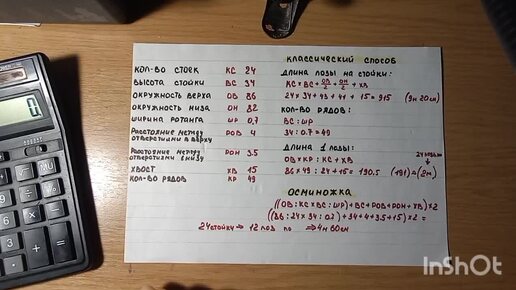 КОЛ-ВО СТОЕК КС 24
ВЫСОТА СТОЙКИ ВС 34
ОКРУЖНОСТЬ ВЕРХА ОВ 86
ОКРУЖНОСТЬ НИЗА ОН 82
ШИРИНА РОТАНГА ШР 0,7
РАССТОЯНИЕ МЕЖДУ ОТВЕРСТИЯМИ ВВЕРХУ РОВ 4
РАССТОЯНИЕ МЕЖДУ ОТВЕРСТИЯМИ ВНИЗУ РОН 3.5
ХВОСТ ХВ 15
КОЛ-ВО РЯДОВ КР 49
КЛАССИЧЕСКИЙ СПОСОБ
ДЛИНА ЛОЗЫ НА СТОЙКИ:
КС×ВС+ОВ/2+ОН/2+ХВ
24×34+43+41+15=915 (9м 20см)
КОЛ-ВО РЯДОВ:
ВС:ШР
34:0.7=49
ДЛИНА 1 ЛОЗЫ:
ОВ×КР:КС+ХВ
86×49:24+15=190.5 (191)=(2м)
ОСМИНОЖКА
((ОВ:КС×ВС:ШР)+ВС+РОВ+РОН+ХВ)×2
((86:24×34:0.7)+34+4+3.5+15)×2=
24 стойки → 12 ЛОЗ ПО ⇒ 4м 60см
0
InShOt